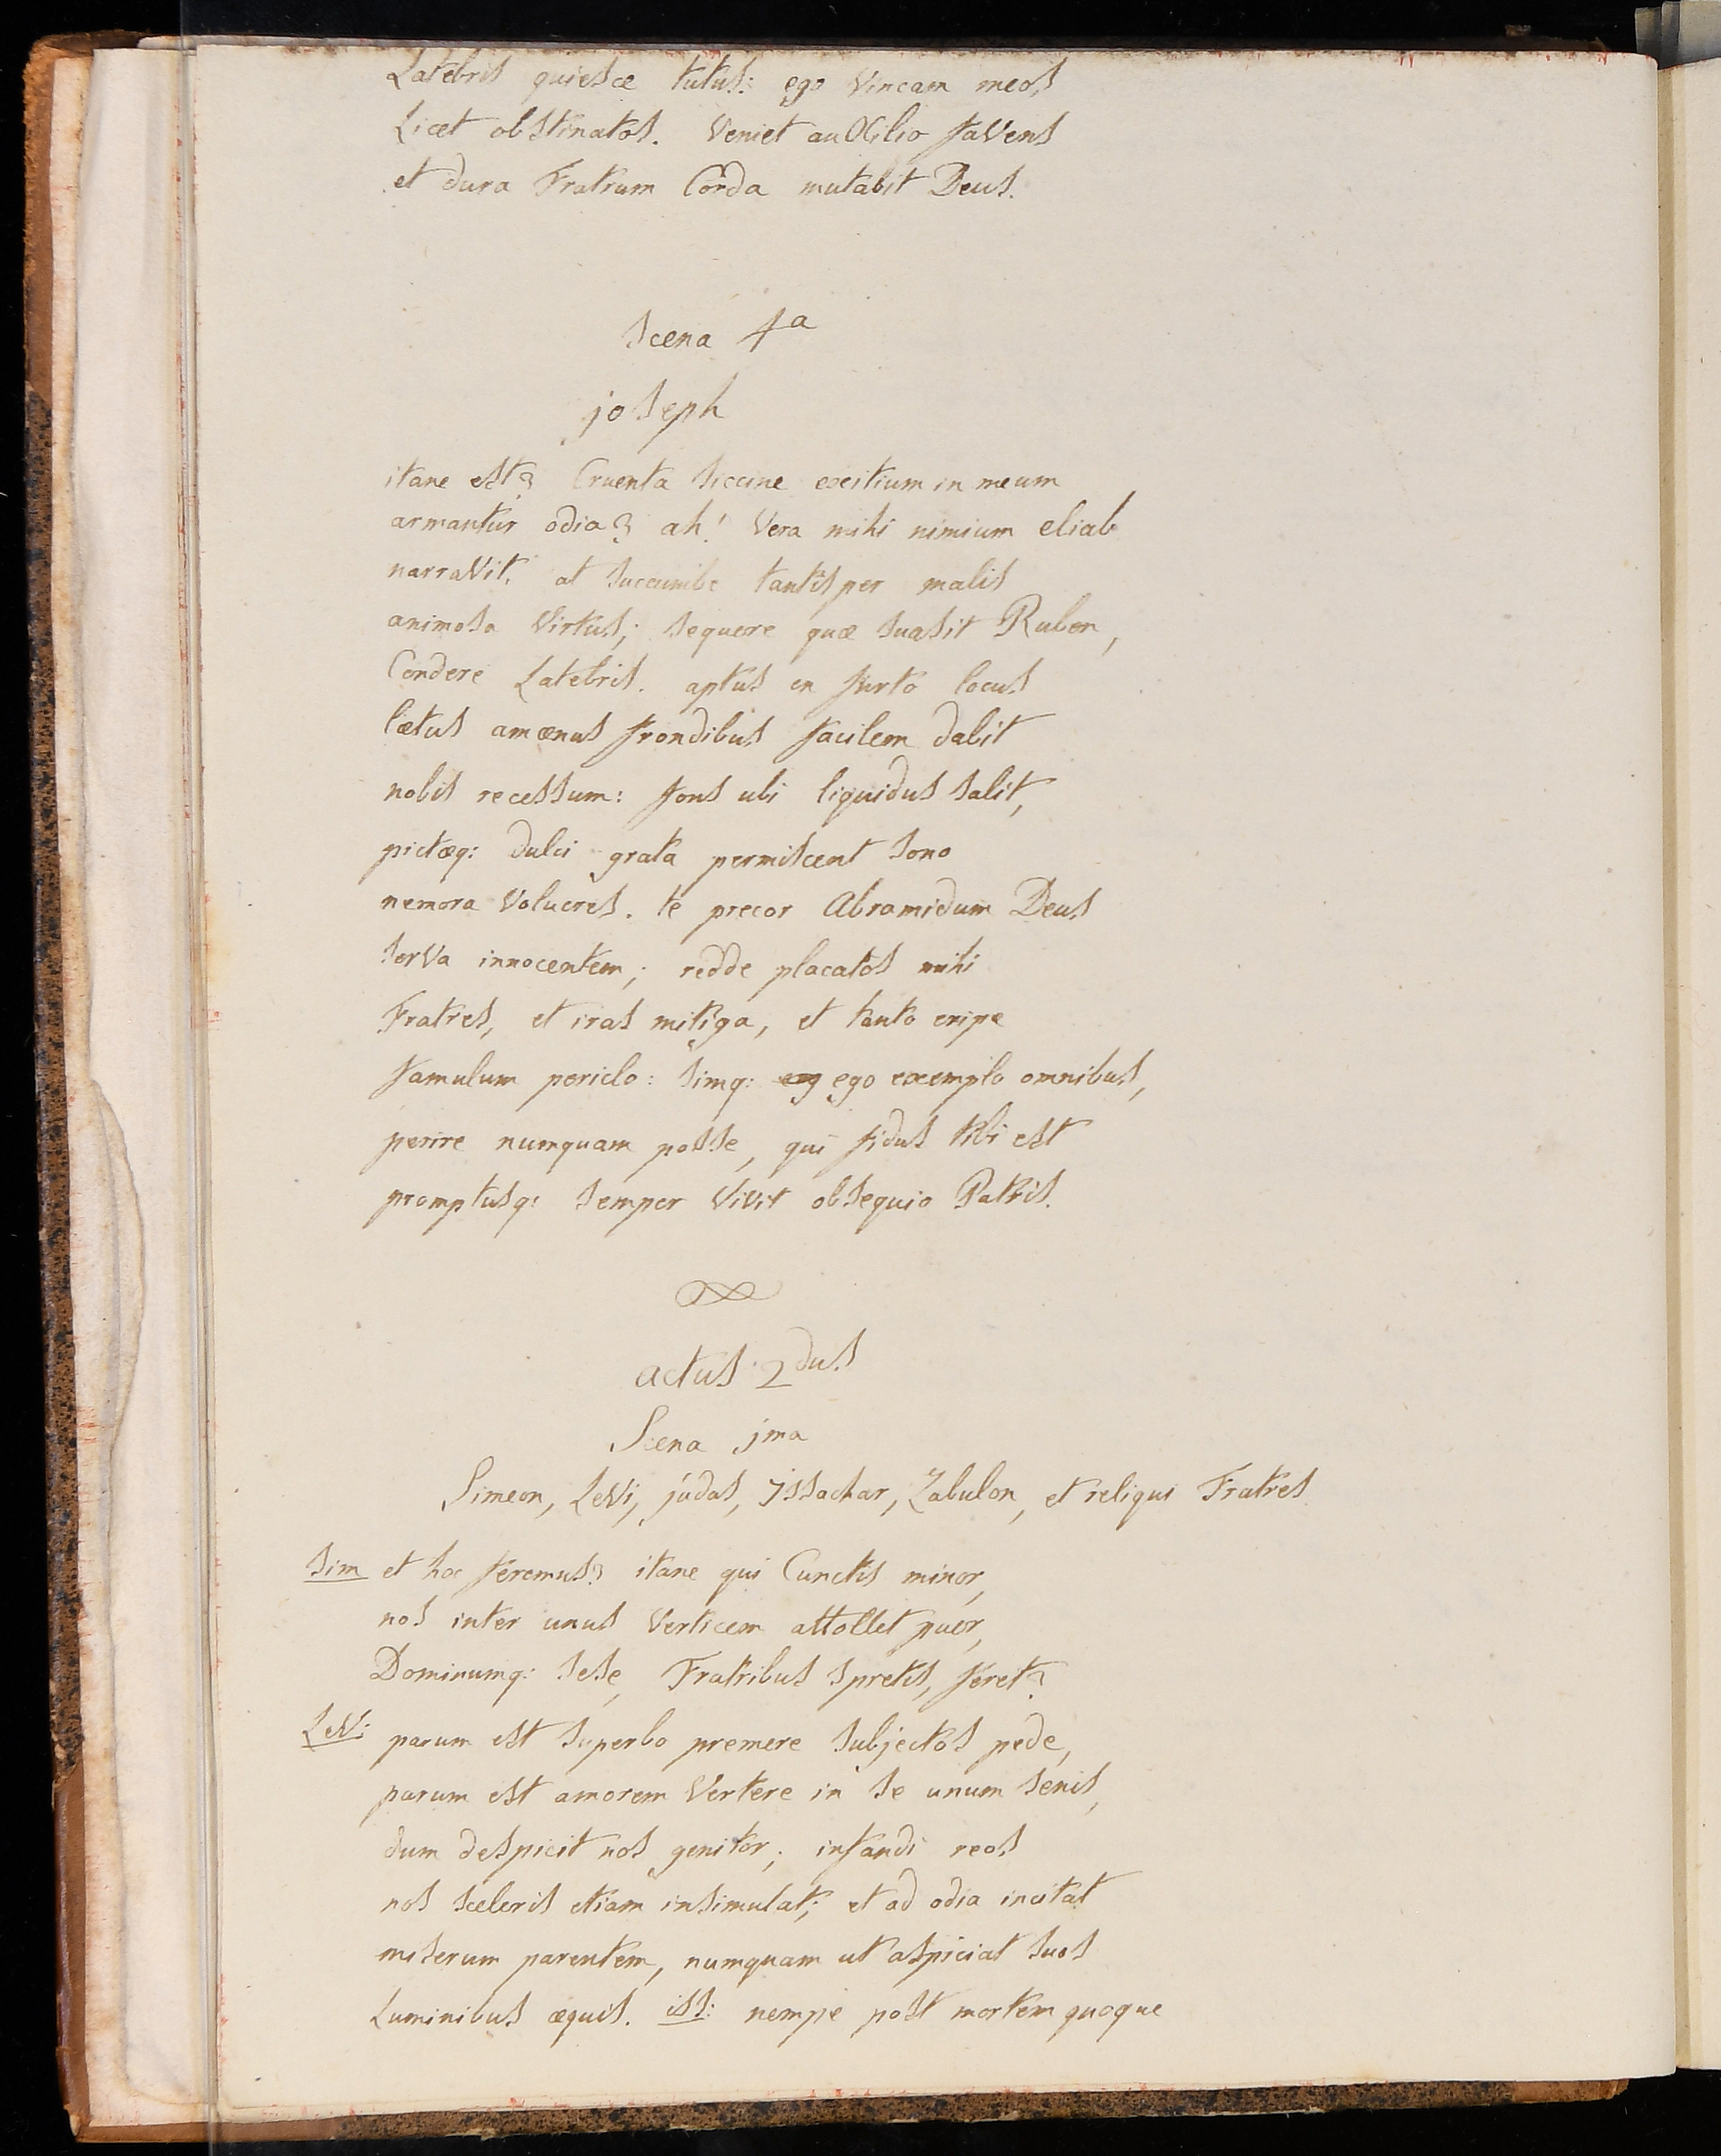 Latebris quiesce tutus: ego Vincam meos
Licet obstinatos. Veniet auxilio faVens
et dura Fratrum Corda mutabit Deus.
Scena 4a
joseph
itane est? Cruenta siccine exitium in meum
armantur odia? ah! Vera mihi nimium eliab
narraVit. at succumbe tantisper malis
animosa Virtus; sequere quæ suasit Ruben,
Condere Latebris. aptus en furto locus
lætus amœnus frondibus facilem dabit
nobis recessum: fons ubi liquidus salit,
pictæq: dulci grata permiscent sono
nemora Volucres. te precor Abramidum Deus
serVa innocentem; redde placatos mihi
Fratres, et iras mitiga, et tanto eripe
famulum periclo: simq: eg ego exemplo omnibus,
perire numquam posse, qui fidus tibi est
promptusq: semper ViVit obsequio Patris.
actus 2dus
Scena jma
Simeon, LeVi, júdas, Issachar, Zabulon, et reliqui Fratres
sim et hoc feremus? itane qui Cunctis minor,
nos inter unus Verticem attollet puer,
Dominumq: sese, Fratribus spretis, feret?
LeVi parum est superbo premere subjectos pede,
parum est amorem Vertere in se unum senis,
dum despicit nos genitor; infandi reos
nos sceleris etiam insimulat; et ad odia incitat
miserum parentem, numquam ut aspiciat suos
Luminibus æquis. iss: nempe post mortem quoque